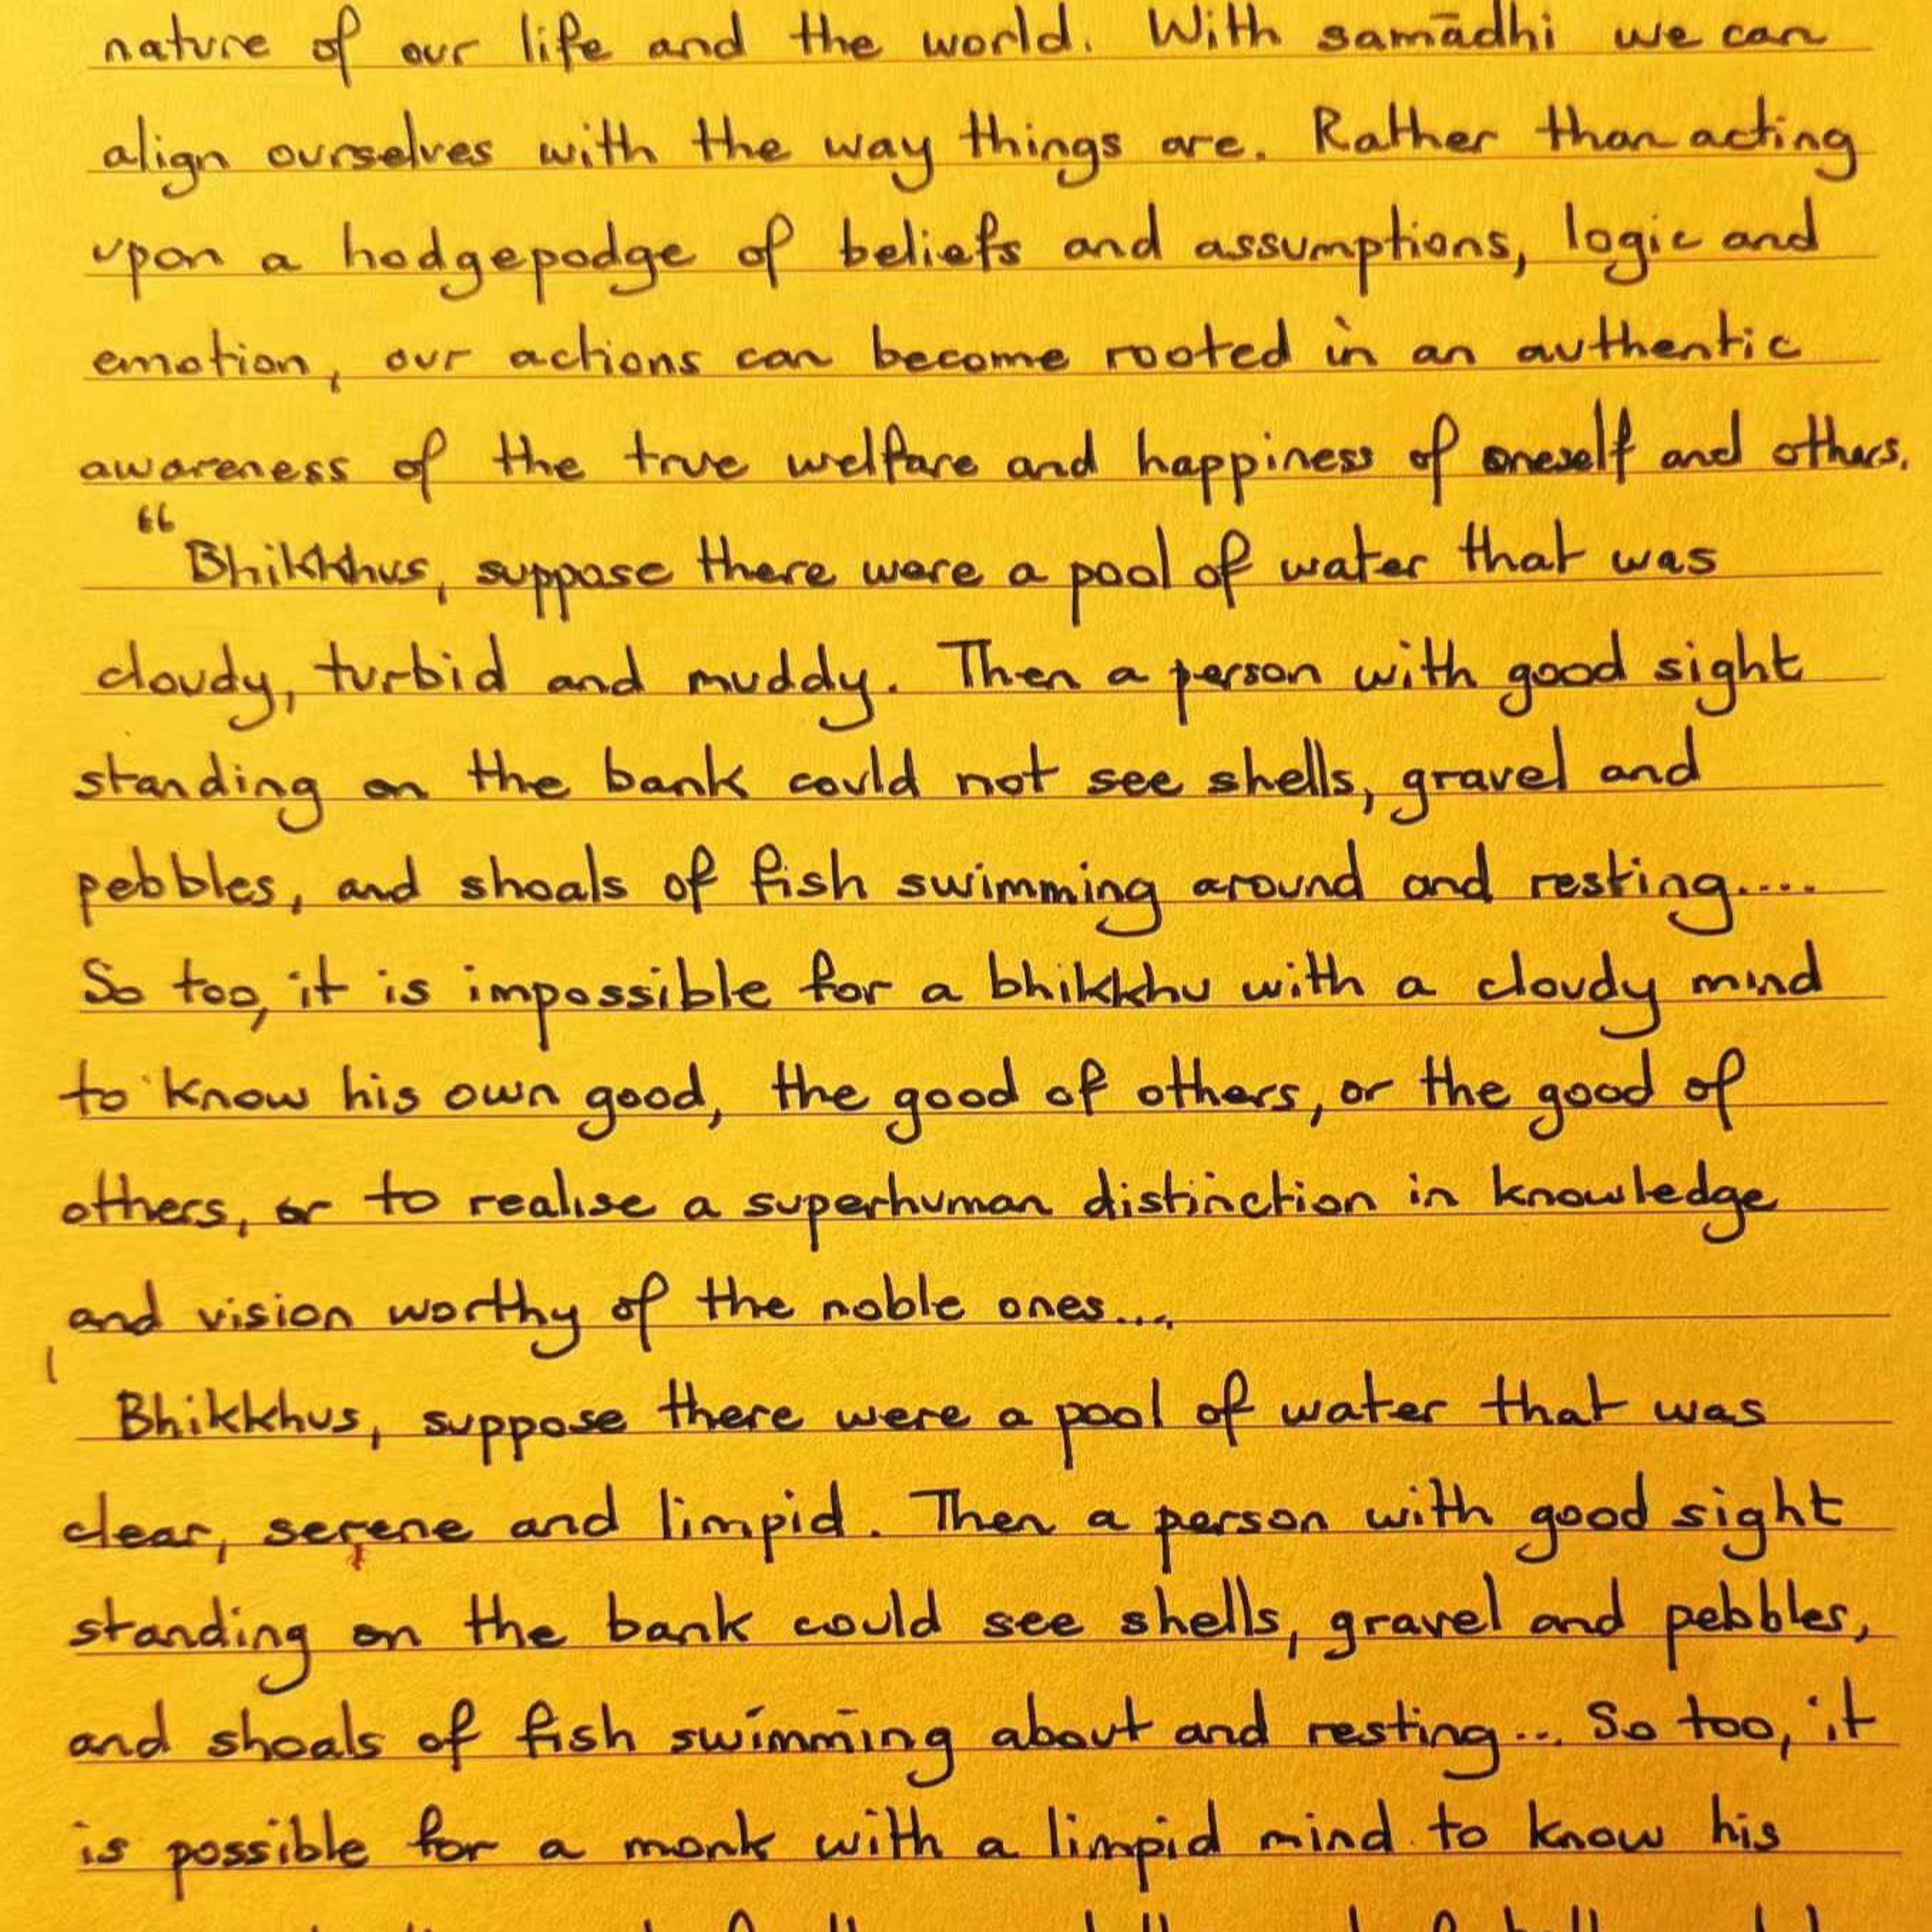 nature of our life and the world. With samādhi we can
align ourselves with the way things are. Rather than acting
upon a hodgepodge of beliefs and assumptions, logic and
emotion, our actions can become rooted in an authentic
awareness of the true welfare and happiness of oneself and others.
“Bhikkhus, suppose there were a pool of water that was
cloudy, turbid and muddy. Then a person with good sight
standing on the bank could not see shells, gravel and
pebbles, and shoals of fish swimming around and resting....
So too, it is impossible for a bhikkhu with a cloudy mind
to know his own good, the good of others, or the good of
others, or to realise a superhuman distinction in knowledge
and vision worthy of the noble ones....
Bhikkhus, suppose there were a pool of water that was
clear, serene and limpid. Then a person with good sight
standing on the bank could see shells, gravel and pebbles,
and shoals of fish swimming about and resting... So too, it
is possible for a monk with a limpid mind to know his